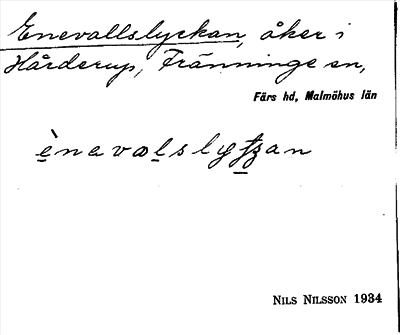 Enevallslyckan, åker i
Hårderup, Tranninge sn,
Färs hd, Malmöhus län
ènavalslyꞔan
NILS NILSSON 1934